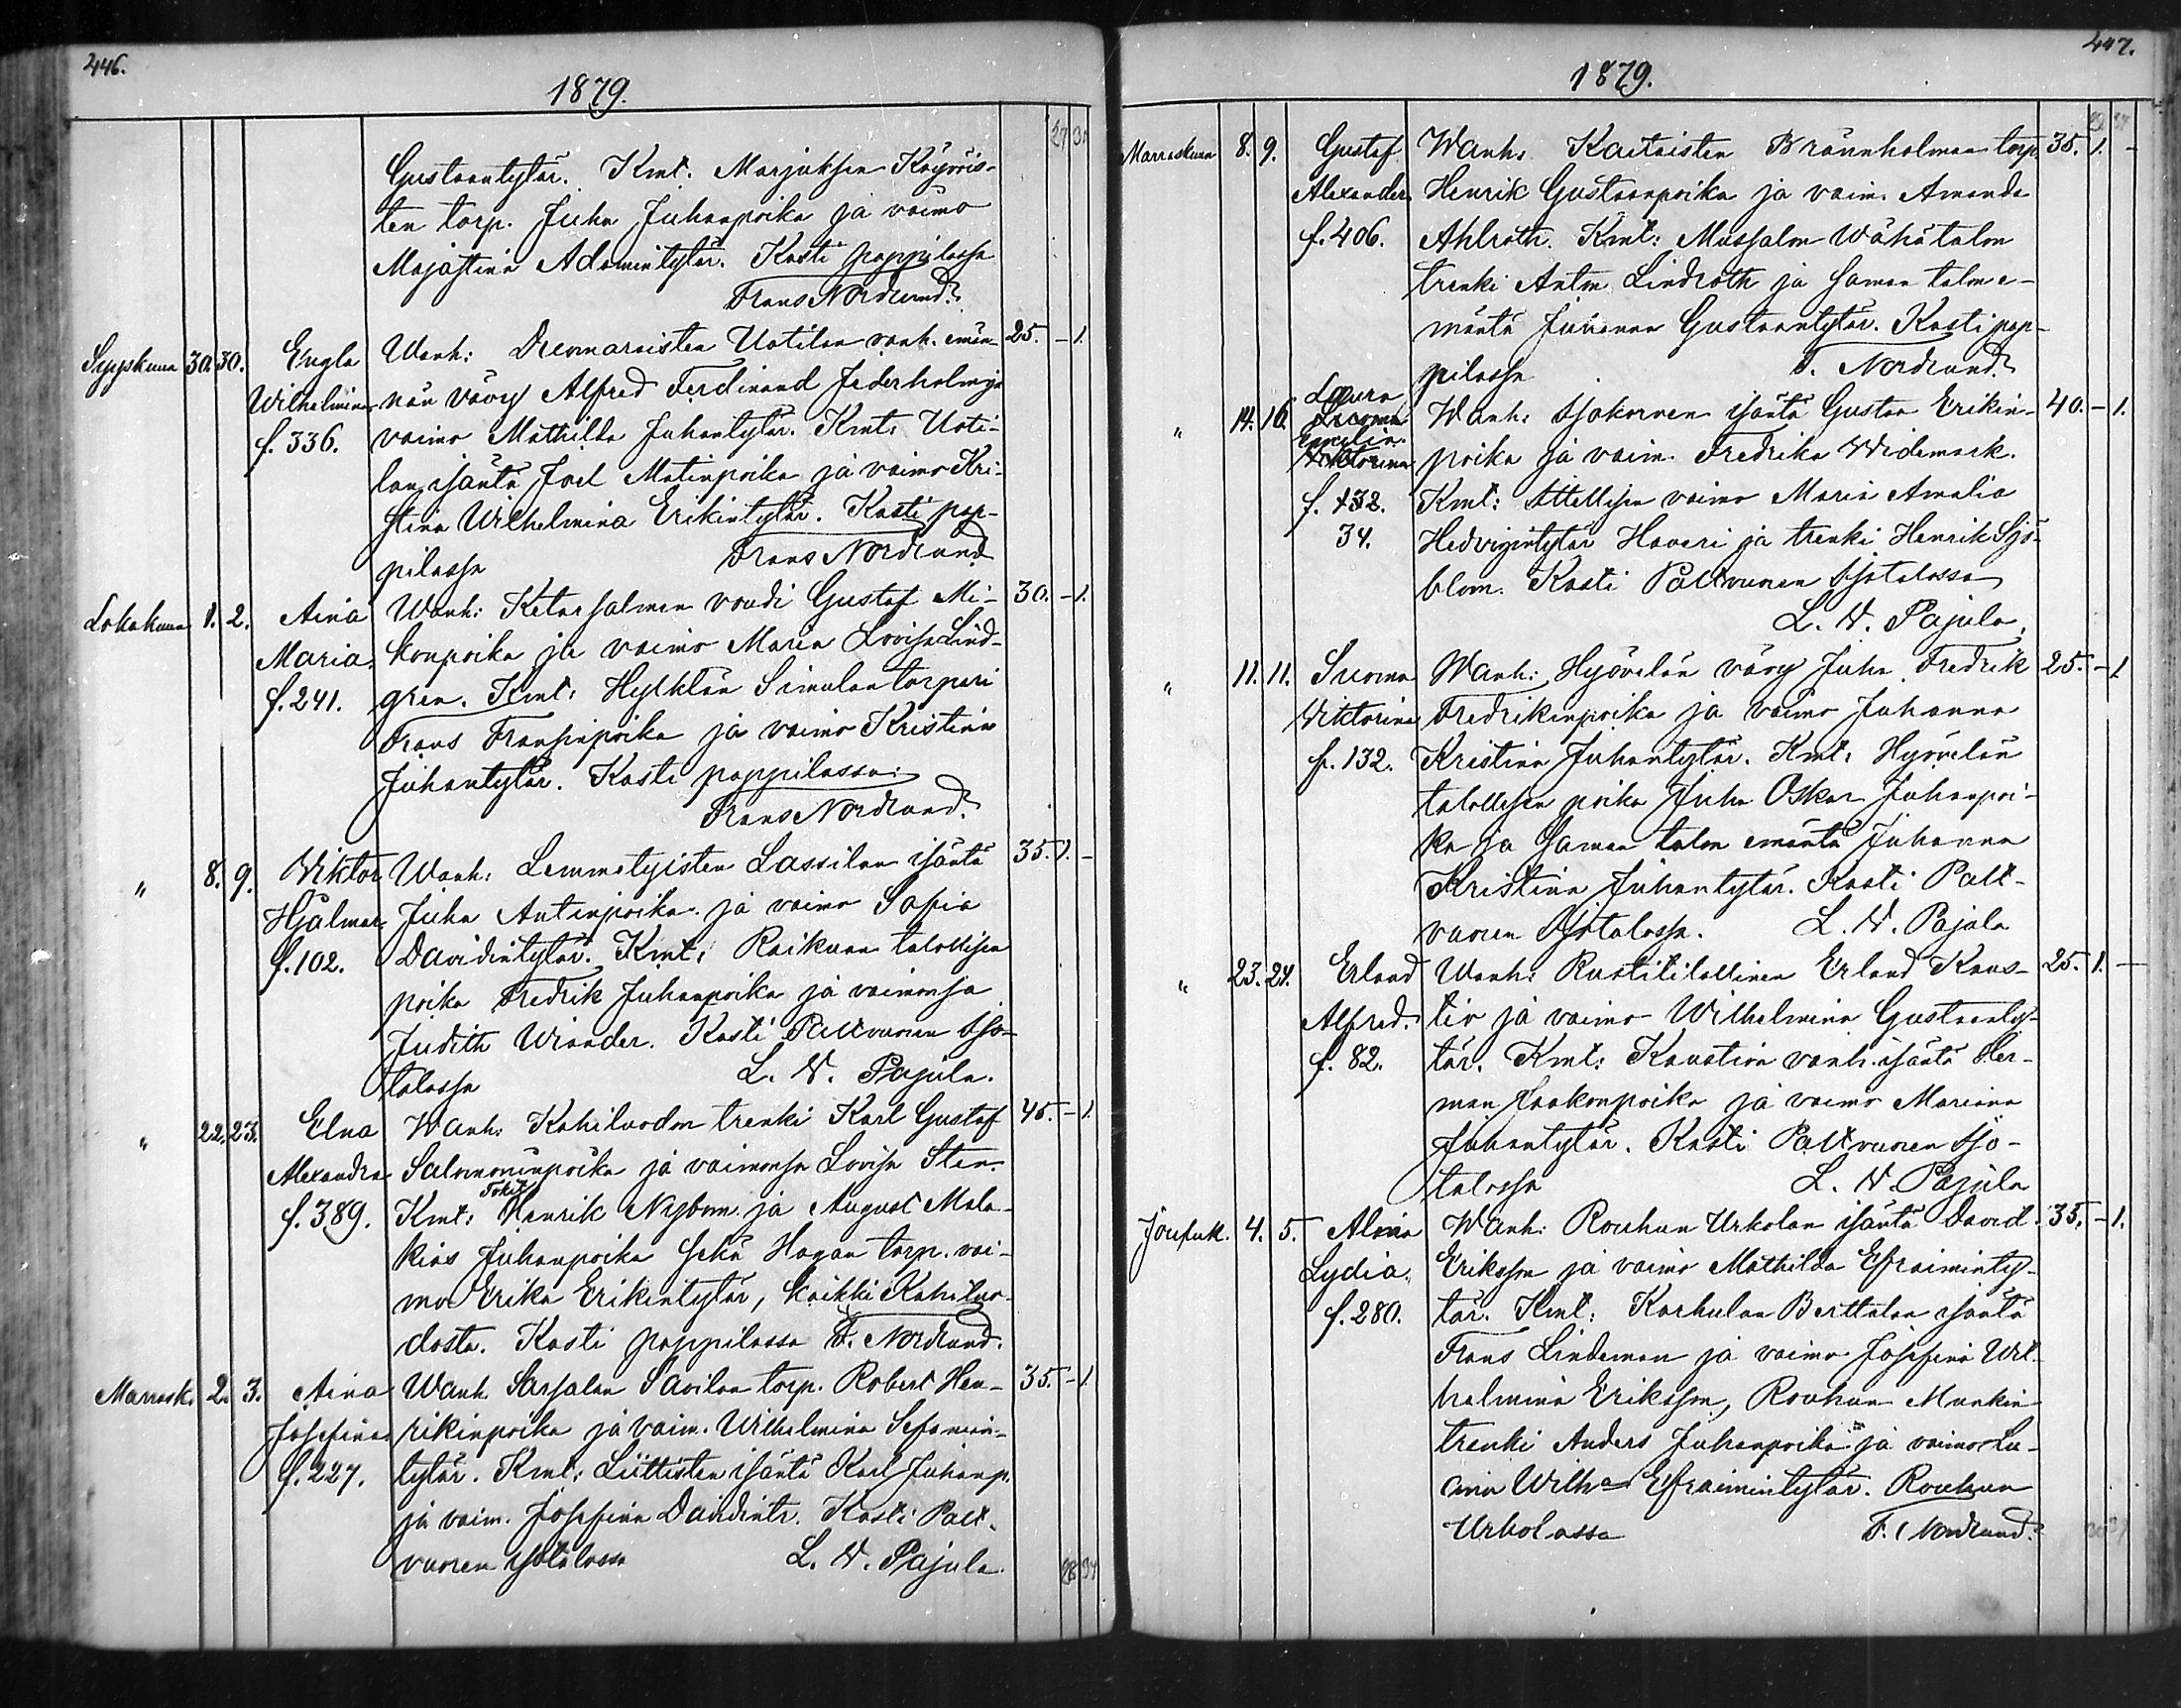 446.
1879.
27 31
Gustaantytär. Kmt. Marjuksen Käyräis-
ten torp. Juha Juhanpoika ja vaimo
Majastina Adamintytär. Kasti pappilassa
Frans Nordlund.
Syyskuun 30. 30. Engla Wanh: Dremaraisten Uotilan vanh. emän- 25. - 1.
Wilhelmina nän vävy Alfred Ferdinand Federholm ja
f. 336. vaimo Mathilda Juhantytär. Kmt: Uoti-
lan isäntä Joel Matinpoika ja vaimo Kri-
stina Wilhelmina Erikintytär. Kasti pap-
pilassa Frans Nordlund
Lokakuun 1. 2. Aina Wanh: Ketarsalmen voudi Gustaf Mi- 30. - 1.
Maria konpoika ja vaimo Maria Lovisa Lind-
f. 241. gren. Kmt: Hylkilän Simulan torpari
Frans Fransinpoika ja vaimo Kristina
Juhantytär. Kasti pappilassa
Frans Nordlund.
" 8. 9. Viktor Wanh: Lemmetyisten Lassilan isäntä 35. 1. -
Hjalmar Juha Antinpoika ja vaimo Sofia
f. 102. Davidintytär. Kmt: Raikunn talollisen
poika Fredrik Juhanpoika ja vaimonsa
Judith Winander. Kasti Paltvuoren Iso-
talossa L. W. Pajula.
" 22. 23. Elna Wanh: Kahiluodon trenki Karl Gustaf 45. - 1.
Alexandra Salomoninpoika ja vaimonsa Lovisa Sten.
f. 389. Kmt: Henrik Nybom ja August Mala-
kias Juhanpoika sekä Hagan torp. vai-
mo Erika Erikintytär, kaikki Kahiluo-
dosta. Kasti pappilassa F. Nordlund.
Marrask. 2. 3. Aina Wanh. Sarsalan Savilan torp. Robert Hen- 35. - 1.
Josefina rikinpoika ja vaim. Wilhelmina Sefanian-
f. 227. tytär. Kmt: Liittisten isäntä Karl Juhanp.
ja vaim. Josefina Davidintr. Kasti Palt-
vuoren isotalossa L. W. Pajula.
28 34
447.
1879.
Marraskuun 8. 9. Gustaf Wanh. Kaitaisten Brännholman torp. 35. 1. -
Alexander Henrik Gustaanpoika ja vaim. Amanda
f. 406. Ahlroth. Kmt: Mussalon Wähätalon
trenki Anton Lindroth ja saman talon e-
mäntä Juhanna Gustaantytär. Kasti pap-
pilassa F. Nordlund.
Laura
" 14. 16. Suoma Wanh: Isokorven isäntä Gustaa Erikin- 40. - 1.
Emelia
Viktorina poika ja vaim. Fredrika Widemark.
f. 132. Kmt: Itsellisen vaimo Maria Amalia
34. Hedvigintytär Haveri ja trenki Henrik Sjö-
blom. Kasti Paltvuoren Isotalossa
L. W. Pajula.
" 11. 11. Suoma Wanh: Hyövelän vävy Juha Fredrik 25. - 1
Viktorina Fredrikinpoika ja vaimo Juhanna
f. 132. Kristina Juhantytär. Kmt: Hyövelän
talollisen poika Juha Oskar Juhanpoi-
ka ja saman talon emäntä Juhanna
Kristina Juhantytär. Kasti Palt-
vuoren Isotalossa. L. W. Pajula
" 23. 24. Erland Wanh: Rustitilallinen Erland Kaus- 25. 1. -
Alfred. tio ja vaimo Wilhelmina Gustaanty-
f. 82. tär. Kmt: Kaustion vanh. isäntä Her-
man Jaakonpoika ja vaimo Mariana
Juhantytär. Kasti Paltvuoren Iso-
talossa L. W. Pajula
Jouluk. 4. 5. Alina Wanh: Rouhun Urkolan isäntä David 35. - 1.
Lydia. Eriksson ja vaimo Mathilda Efraiminty-
f. 280. tär. Kmt: Karhulan Berttalan isäntä
Frans Lindeman ja vaimo Josefina Wil-
helmina Eriksson, Rouhun Munkin
trenki Anders Juhanpoika ja vaimo Lu-
ona Wilh:a Efraimintytär. Rouhun
Urkolassa F. Nordlund.